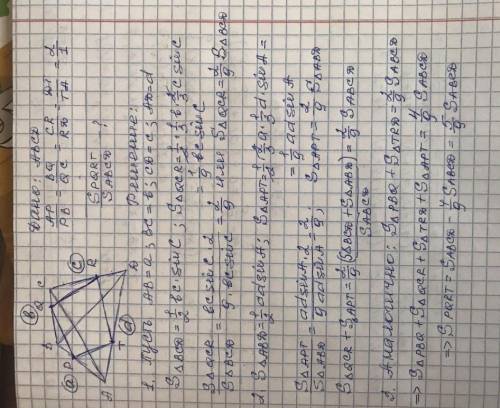 Дано: ABCD
AP/PB = BQ/QC = CR/RD = DT/TA = 2/1
S PQRT / S ABCD ?
B
b
Q
C
a
P
c
R
A
T
d
D
Решение:
1. Пусть AB=a; BC=b; CD=c; AD=d
S△BCD=1/2 bc·sinC; S△QCR=1/2·1/3 b·2/3 c sinC
=1/9 bc sinC
S△QCR / S△BCD = bc sinC·2 / 9·bc sinC = 2/9 или S△QCR=2/9 S△BCD
2. S△ABD=1/2 ad sinA; S△APT=1/2·2/3 a·1/3 d·sinA=
=1/9 ad sinA
S△APT / S△ABD = ad sinA·2 / 9 ad sinA = 2/9; S△APT=2/9 S△ABD
S△QCR+S△APT=2/9(S△BCD+S△ABD)=2/9 SABCD
SABCD
3. Аналогично: S△PBQ+S△TRD=2/9 SABCD
=> S△PBQ+S△QCR+S△TRD+S△APT=4/9 SABCD
=> SPQRT=SABCD-4/9 SABCD=5/9 SABCD